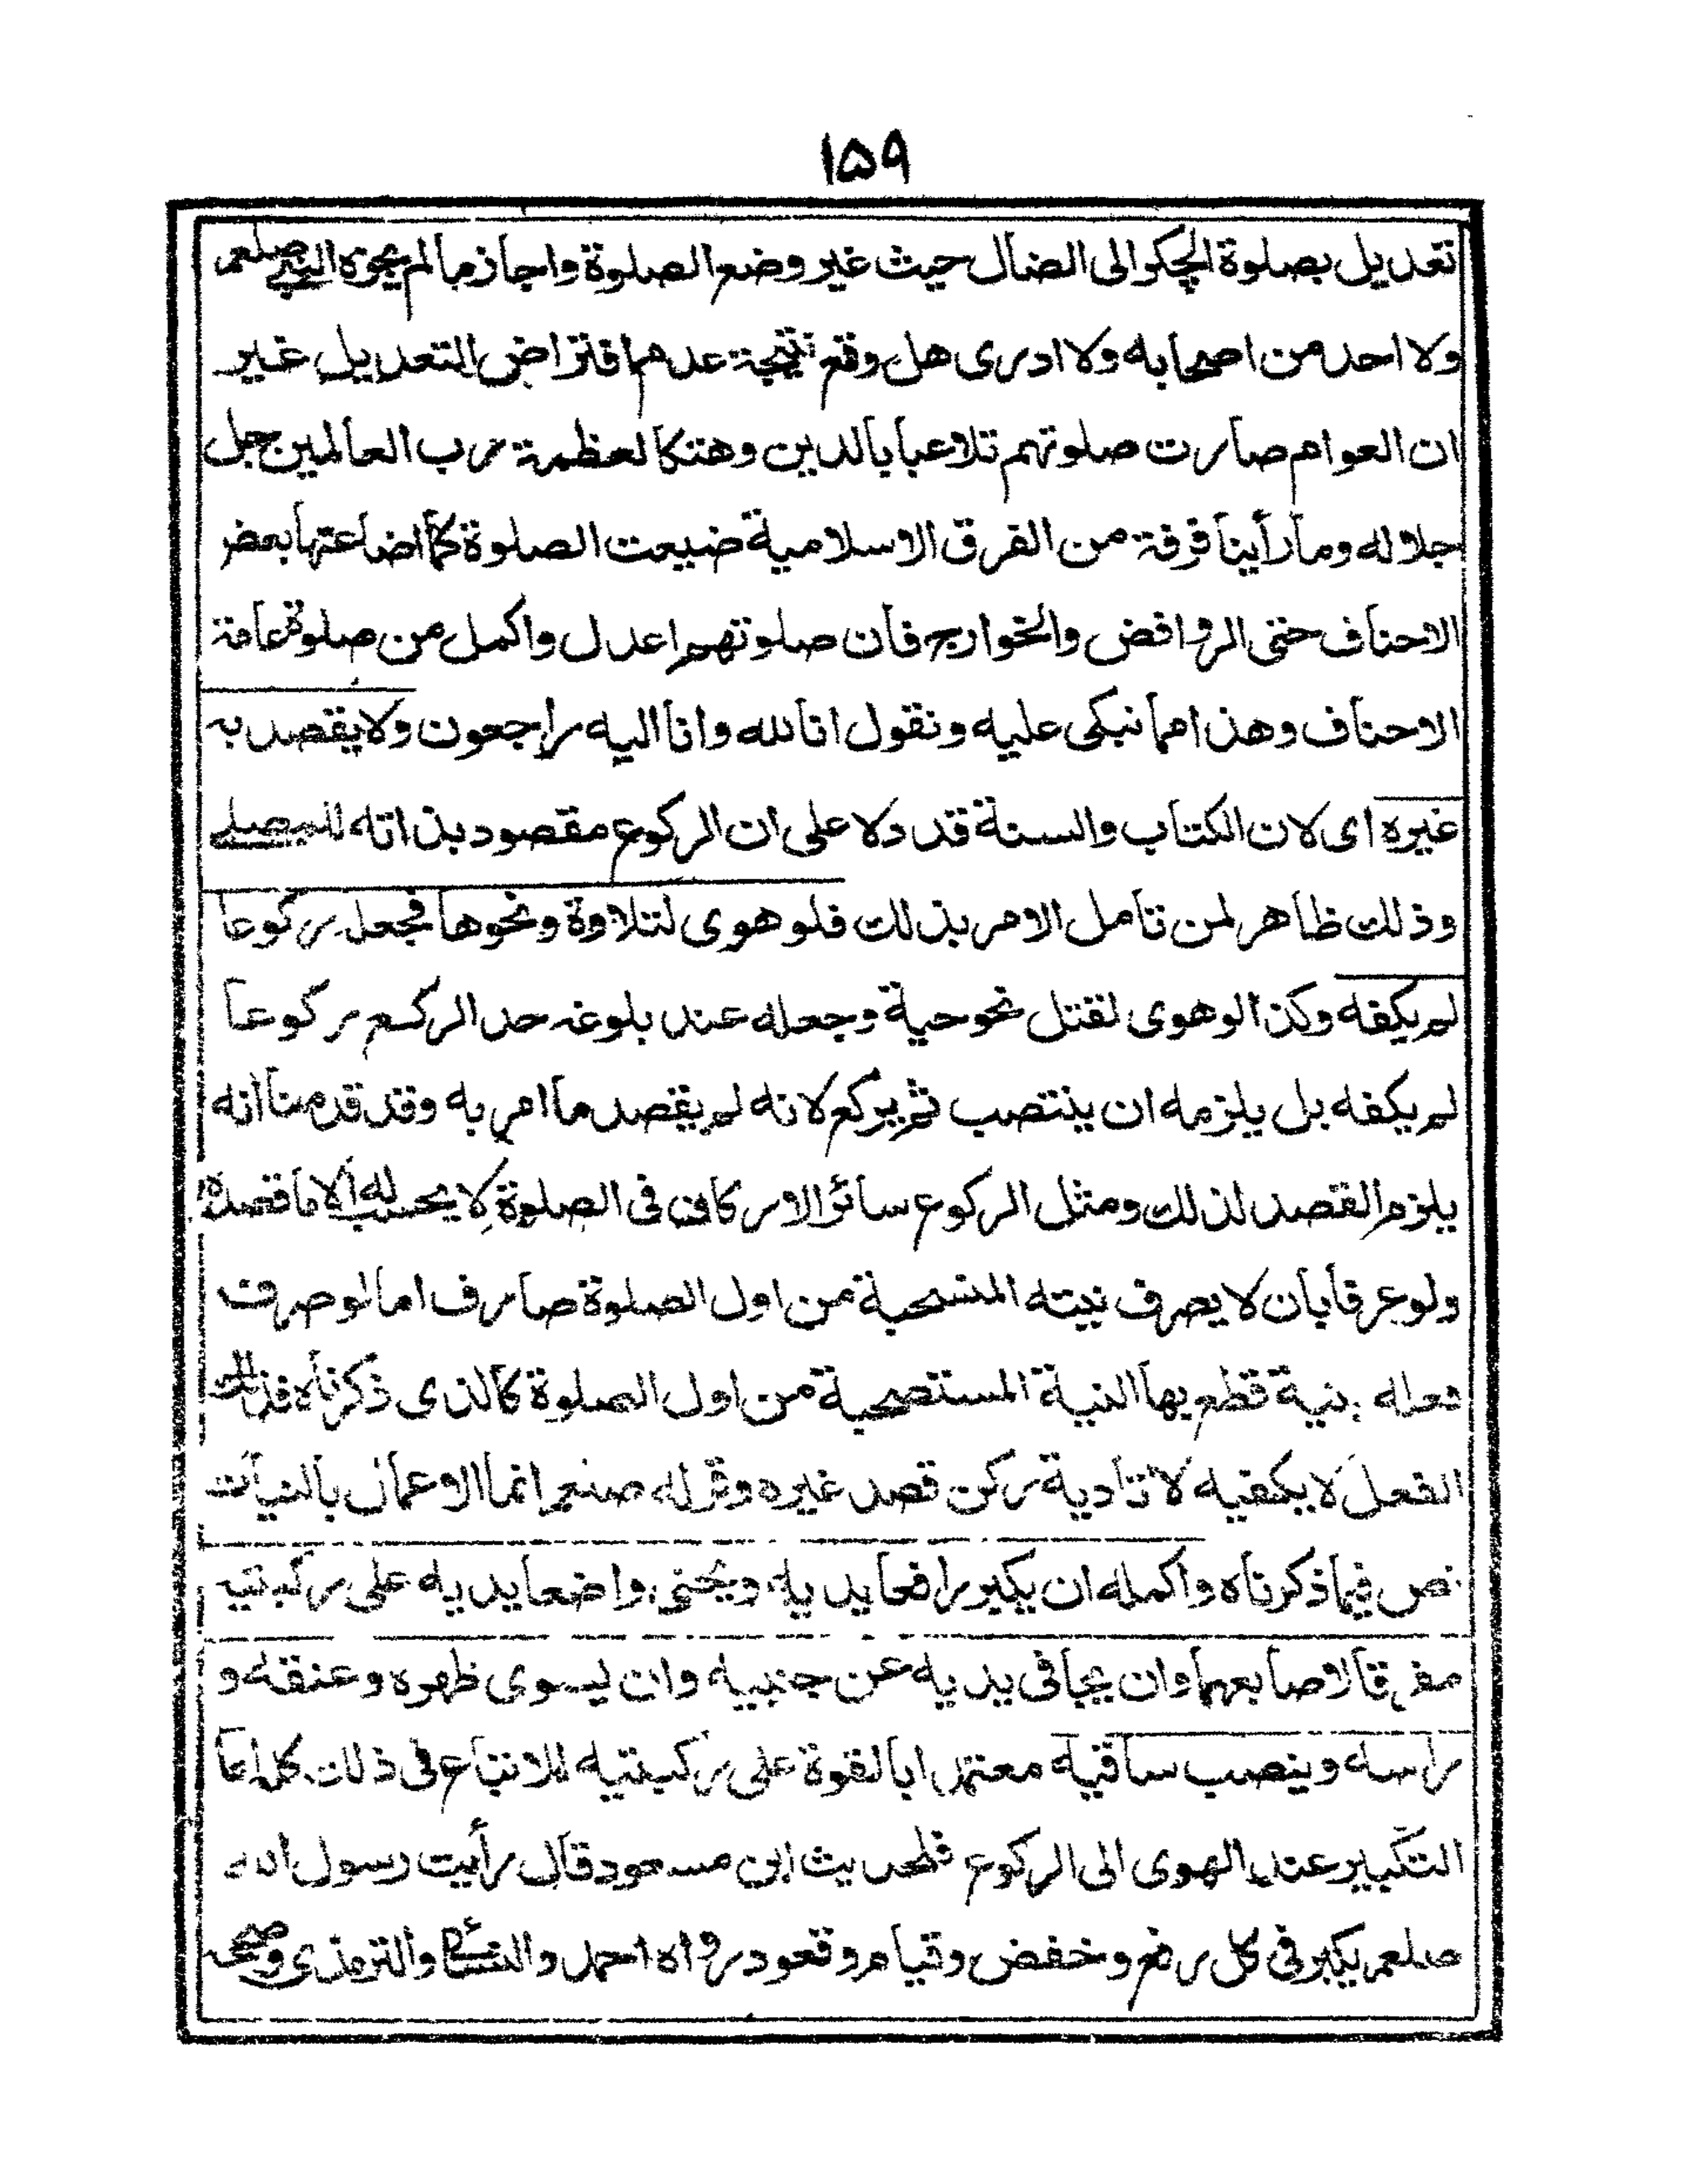 ١٥٩
تعديل بصلوة الجكوالى الضال حيث غير وضع الصلوة واجاز مالم يجوزه النبى صلعم
ولا احد من اصحابه ولا ادرى هل وقع نتيجة عدم افتراض التعديل غير
ان العوام صارت صلوتهم تلاعبا بالدين وهتكا لعظمة رب العالمين جل
جلاله وما رأينا فرقة من الفرق الاسلامية ضيعت الصلوة كما اضاعتها بعض
الاحناف حتى الروافض والخوارج فان صلوتهم اعدل واكمل من صلوة عامة
الاحناف وهذا مما نبكى عليه ونقول انا لله وانا اليه راجعون ولا يقصد به
غيره اى لان الكتاب والسنة قد دلا على ان الركوع مقصود بذاته للمصلى
وذلك ظاهر لمن تامل الامر بذلك فلو هوى لتلاوة ونحوها فجعل ركوعا
لم يكفه وكذا لو هوى لقتل نحو حية وجعله عند بلوغه حد الركع ركوعا
لم يكفه بل يلزمه ان ينتصب ثم يركع لانه لم يقصد ما امر به وقد قدمنا انه
يلزم القصد لذلك ومثل الركوع سائر الاركان فى الصلوة لا يحسب له الا ما قصده
ولو عرفا بان لا يصرف نيته المنسحبة من اول الصلوة صارف اما لو صرف
فعله بنية قطع بها النية المستصحبة من اول الصلوة كالذى ذكرناه فذلك
الفعل لا يكفيه لا تادية ركن قصد غيره وقوله صلعم انما الاعمال بالنيات
نص فيما ذكرناه واكمله ان يكبر رافعا يديه وينحنى واضعا يديه على ركبتيه
مفرقا لاصابعهما وان يجافى يديه عن جنبيه وان يسوى ظهره وعنقه و
راسه وينصب ساقيه معتمدا بالقوة على ركبتيه للاتباع فى ذلك كله اما
التكبير عند الهوى الى الركوع فلحديث ابن مسعود قال رأيت رسول الله
صلعم يكبر فى كل رفع وخفض وقيام وقعود رواه احمد والنسائى والترمذى وصححه